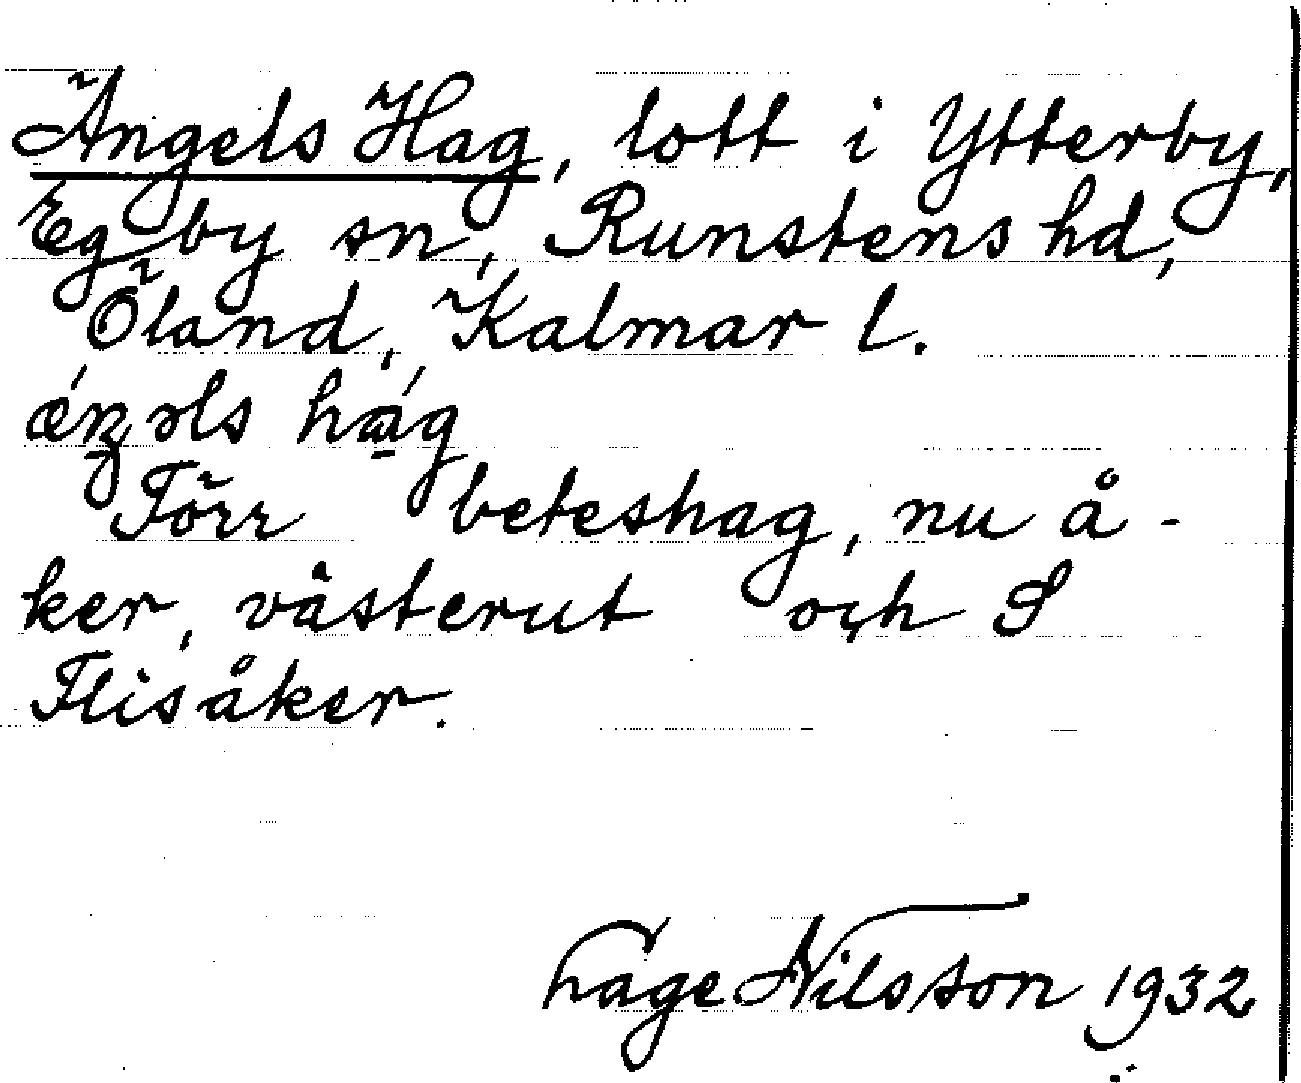 Ängels Hag, lott i Ytterby,
Egby sn, Runstens hd,
Öland, Kalmar l.
ǽŋəls hág
Förr beteshag, nu å-
ker, västerut och S
Flisåker.
Hage Nilsson 1932